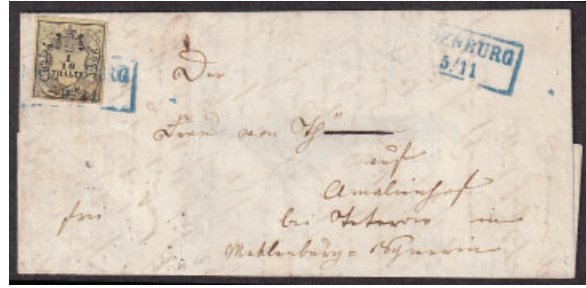 1
10
THALER
RG
ENBURG
5/11
Der
Frau von Th
auf
Amalienhof
frei
bei Teterow in
Meklenburg=Schwerin